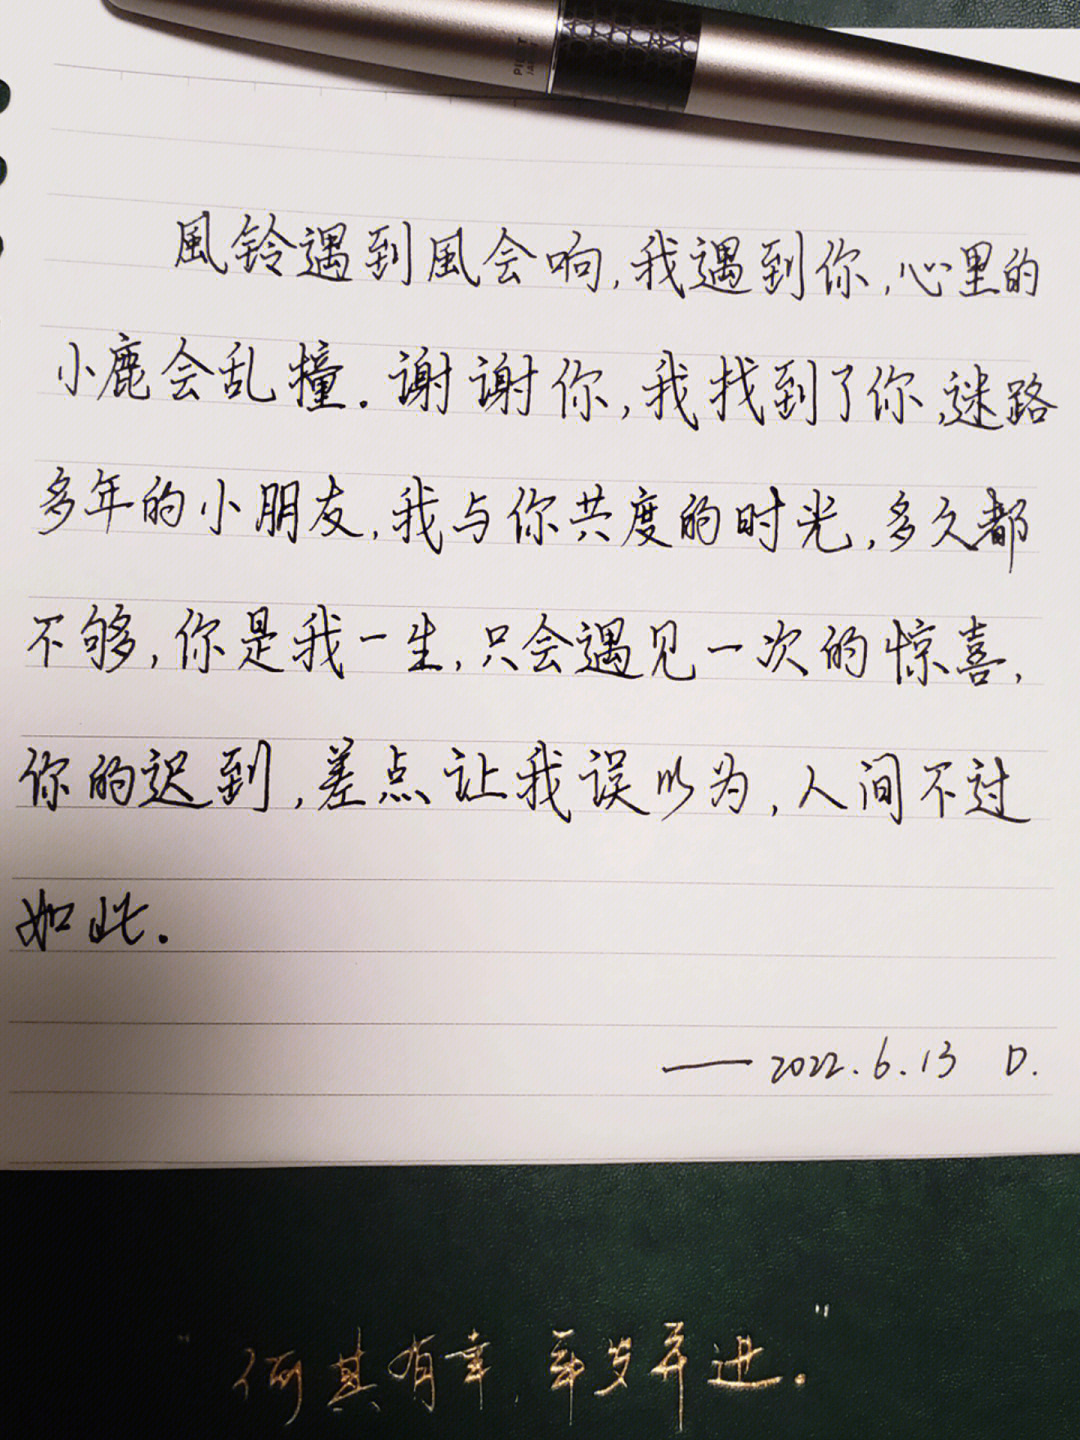 PILOT
JAPAN
風铃遇到風会响,我遇到你,心里的
小鹿会乱撞.谢谢你,我找到了你,迷路
多年的小朋友,我与你共度的时光,多久都
不够,你是我一生,只会遇见一次的惊喜,
你的迟到,差点让我误以为,人间不过
如此.
——2022.6.13 D.
"何其有幸,年岁并进."